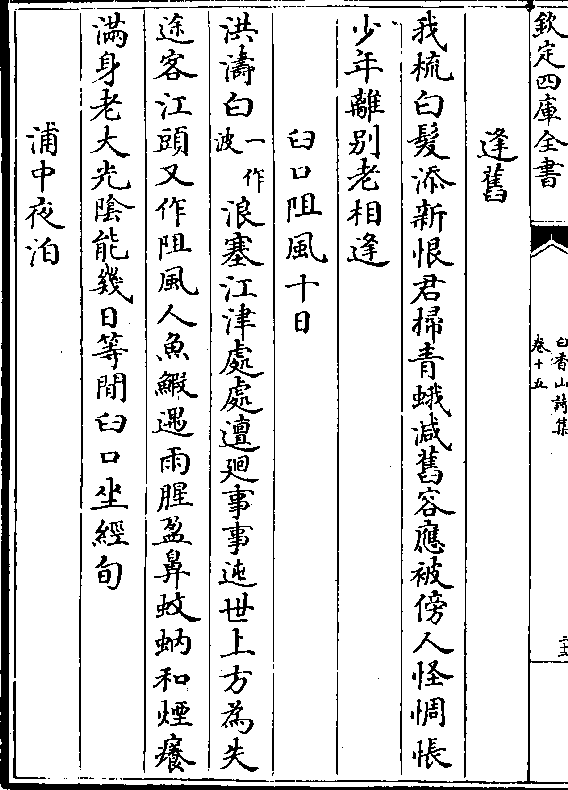 欽定四庫全書
白香山詩集
卷十五
逢舊
我梳白髮添新恨君掃青蛾減舊容應被傍人怪惆悵
少年離別老相逢
臼口阻風十日
洪濤白一作波浪塞江津處處邅廻事事迍世上方為失
途客江頭又作阻風人魚鰕遇雨腥盈鼻蚊蚋和煙癢
滿身老大光陰能幾日等閒臼口坐經旬
浦中夜泊